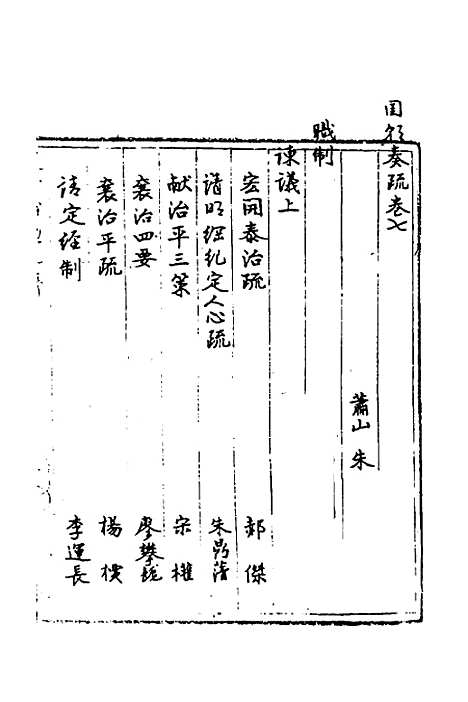 國朝奏疏卷七
蕭山 朱
職制
諫議上
宏開泰治疏 郝傑
請明綱紀定人心疏 朱鼎
献治平三策 宋權
襄治四要 廖攀龍
襄治平疏 楊
請定經制 李運長